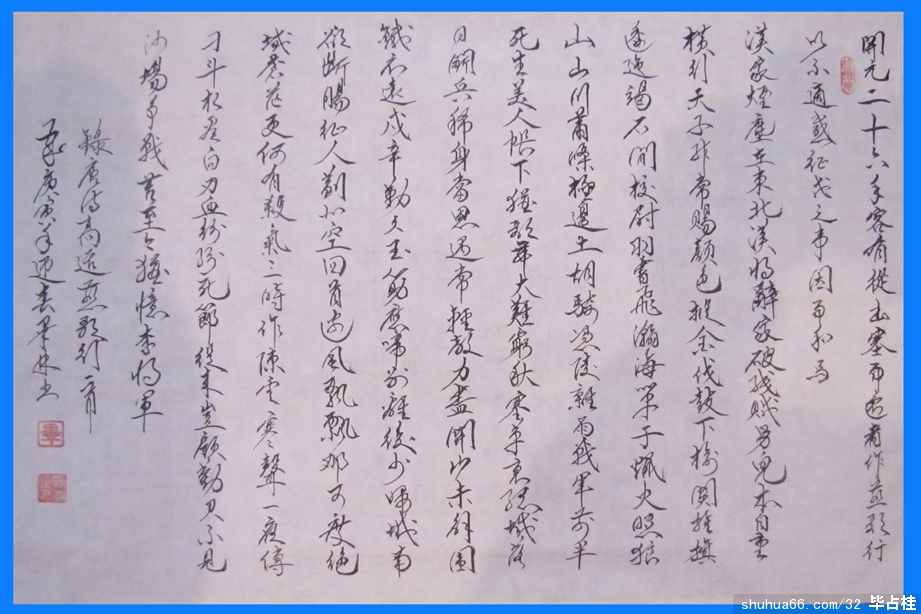 開元二十六年客有從出塞而還者作燕歌行
以示適感征戍之事因而和焉
漢家煙塵在東北漢將辭家破殘賊男兒本自重
橫行天子非常賜顏色摐金伐鼓下榆關旌旗
逶迤碣石間校尉羽書飛瀚海單于獵火照狼
山山川蕭條極邊土胡騎憑陵雜雨戰軍前半
死生美人帳下猶歌舞大難窮秋塞草衰孤城落
日鬥兵稀身當恩遇常輕敵力盡關山未解圍
鐵衣遠戍辛勤久玉筯應啼別離後少婦城南
欲斷腸征人薊北空回首邊風飄飄那可度絕
域蒼茫更何有殺氣三時作陣雲寒聲一夜傳
刁斗相看白刃血紛紛死節從來豈顧勳君不見
沙場爭戰苦至今猶憶李將軍
錄唐詩高適燕歌行一首
庚寅年迎春畢書
shuhua66.com/32 毕占桂